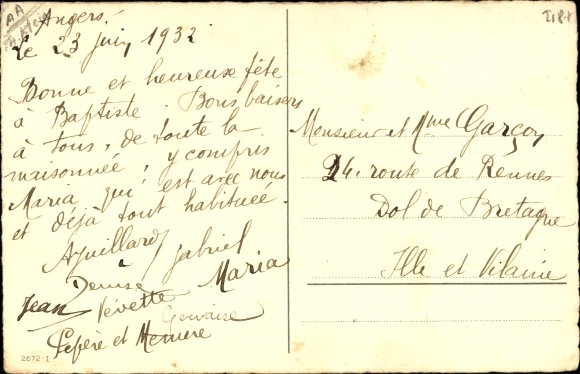 Angers.
Le 23 juin 1932
Bonne et heureuse fête
à Baptiste. Bons baisers
à tous, de toute la
maisonnée, y compris
Maria qui est avec nous
et déjà tout habituée.
Aguillard Gabriel
Denise Maria
Jean Vévette
Gervaise
Pépère et Mémère
2672-I
Monsieur et Mme Garçon
24. route de Rennes
Dol de Bretagne
Ille et Vilaine